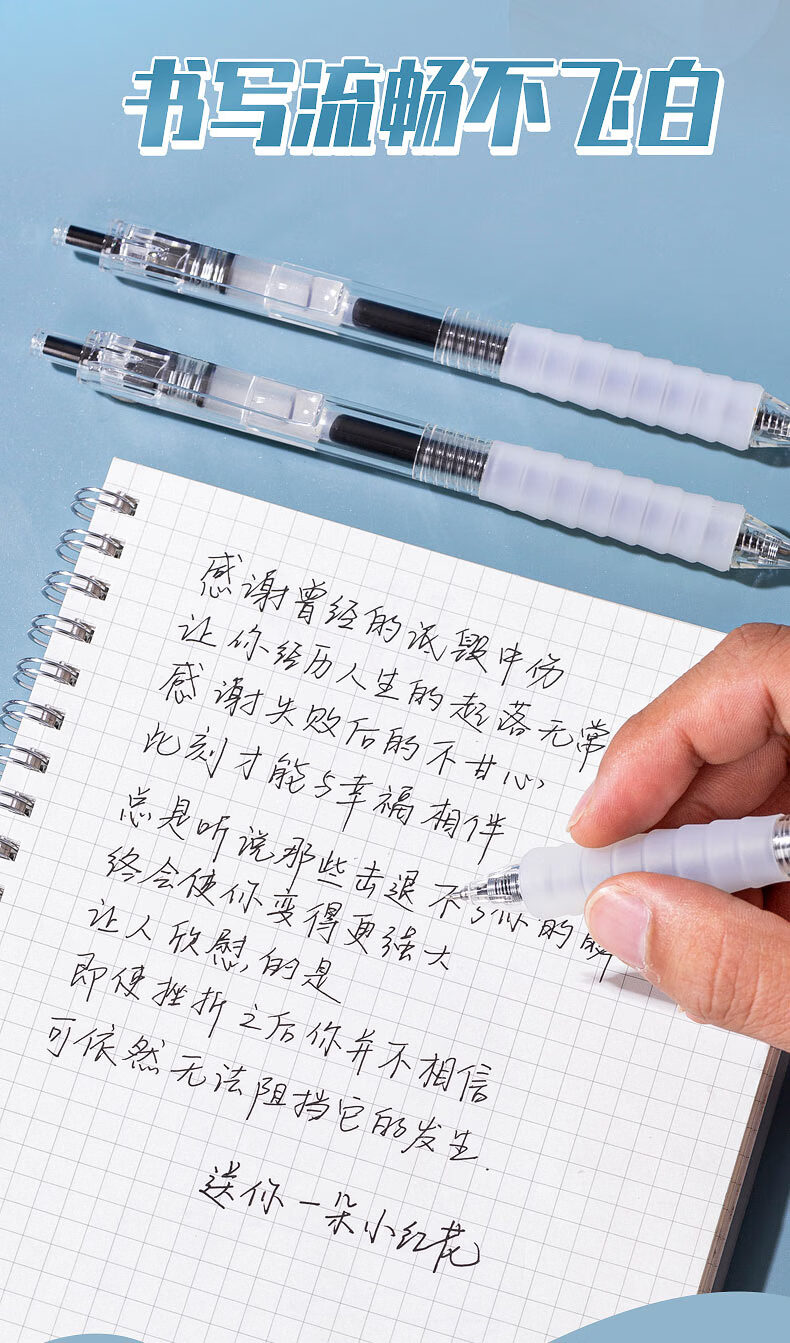 书写流畅不飞白
感谢曾经的诋毁中伤
让你经历人生的起落无常
感谢失败后的不甘心
此刻才能与幸福相伴
总是听说那些击退不了你的
终会使你变得更强大
让人欣慰的是
即使挫折之后你并不相信
可依然无法阻挡它的发生.
送你一朵小红花